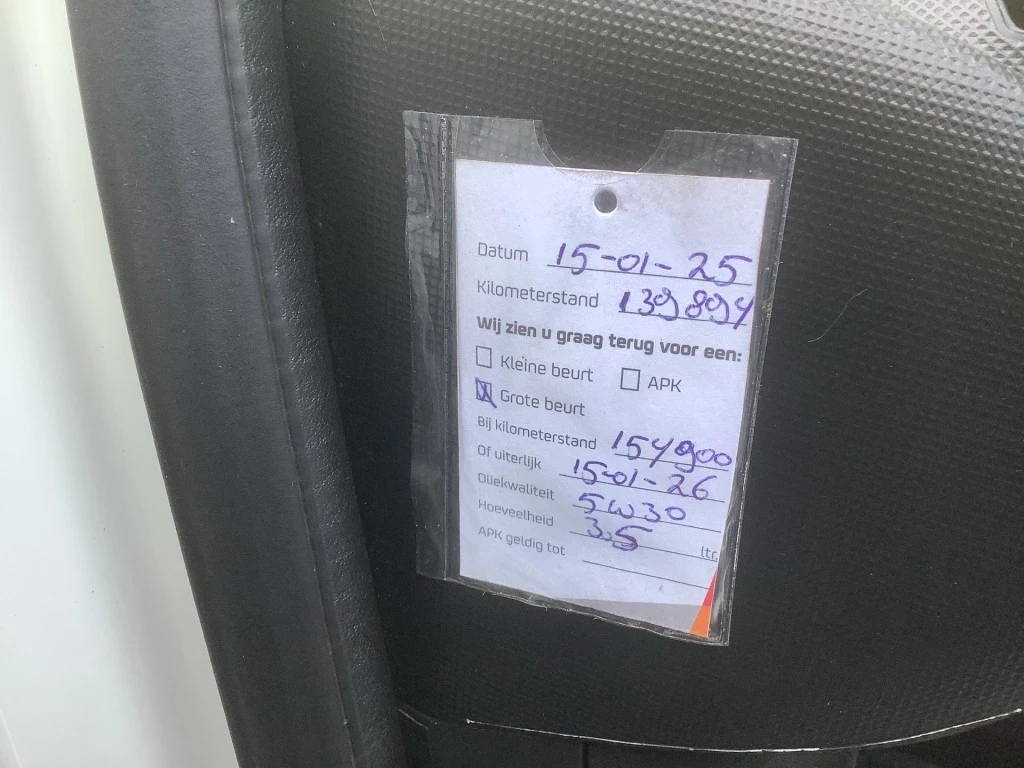 Datum 15-01-25
Kilometerstand 139894
Wij zien u graag terug voor een:
Kleine beurt APK
Grote beurt
Bij kilometerstand 154900
Of uiterlijk 15-01-26
Oliekwaliteit 5W30
Hoeveelheid 3.5 ltr
APK geldig tot